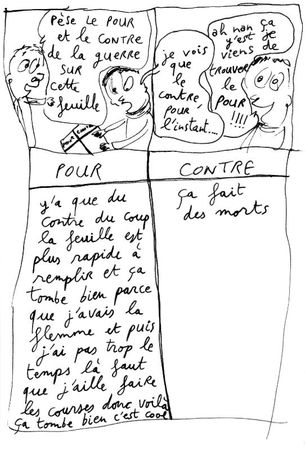 Pèse le POUR
et le CONTRE
de la guerre
SUR
cette
feuille
Pour
Contre
je vois
que
le
contre,
POUR
l'instant....
ah nan ça
y'est je
viens de
TROUVER
le
POUR
!!!!
POUR
y'a que du
contre du coup
la feuille est
plus rapide à
remplir et ça
tombe bien parce
que j'avais la
flemme et puis
j'ai pas trop le
temps là faut
que j'aille faire
les courses donc voilà
ça tombe bien c'est cool
CONTRE
ça fait
des morts